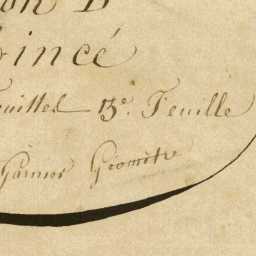 on B
incé
euilles 13e. Feuille
Garnier Géomètre